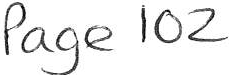 Page 102